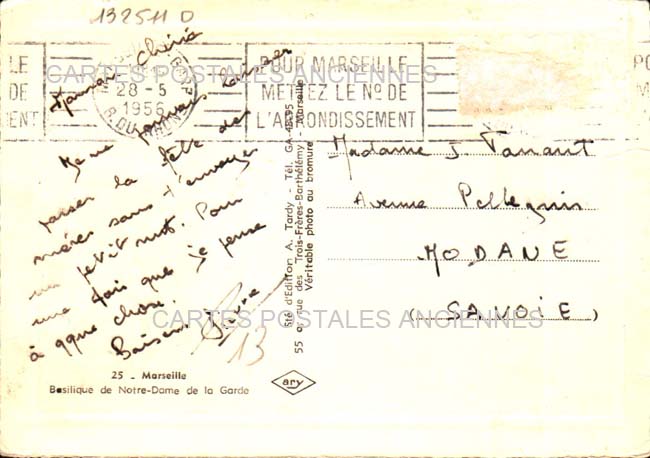 132511 D
LE
DE
ENT
28-5
1956
POUR MARSEILLE
METTEZ LE No DE
L'ARRONDISSEMENT
PO
M
L'A
CARTES POSTALES ANCIENNES
Maman Chérie
Je ne pouvais laisser
passer la fête des
mères sans t'envoyer
un petit mot. Pour
une fois que je pense
à qque chose.
Baisers Pierre
13
Sté d'Edition A. Tardy - Tél. GA
55 rue des Trois-Frères-Barthélémy - Marseille
Véritable photo au bromure
Madame J.
Avenue
MODANE
(SAVOIE)
CARTES POSTALES ANCIENNES
25 - Marseille
Basilique de Notre-Dame de la Garde
ary